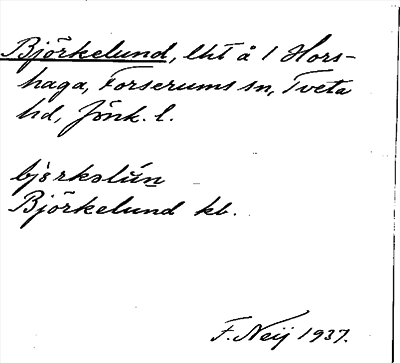 Björkelund, lht å 1 Hors-
haga, Forserums sn, Tveta
hd, Jönk. l.
bjərkəlún
Björkelund kb.
F. Neij 1937.